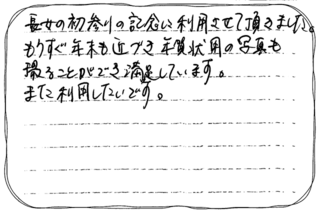 長女の初参りの記念に利用させて頂きました。
もうすぐ年末も近づき年賀状用の写真も
撮ることができ満足しています。
また利用したいです。